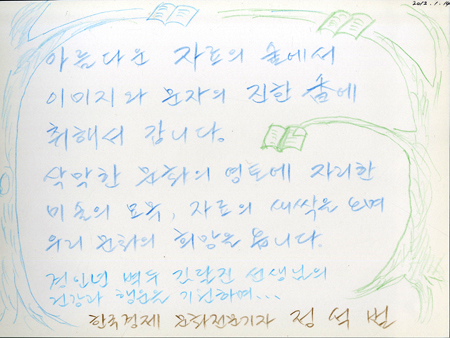 2012. 1. 14
아름다운 자료의 숲에서
이미지와 문자의 진한 술에
취해서 갑니다.
삭막한 문화의 영토에 자리한
미술의 모옥, 자료의 새싹을 보며
우리 문화의 희망을 봅니다.
경인년 벽두 김달진 선생님의
건강과 행운을 기원하며...
한국경제 문화전문기자 정석범